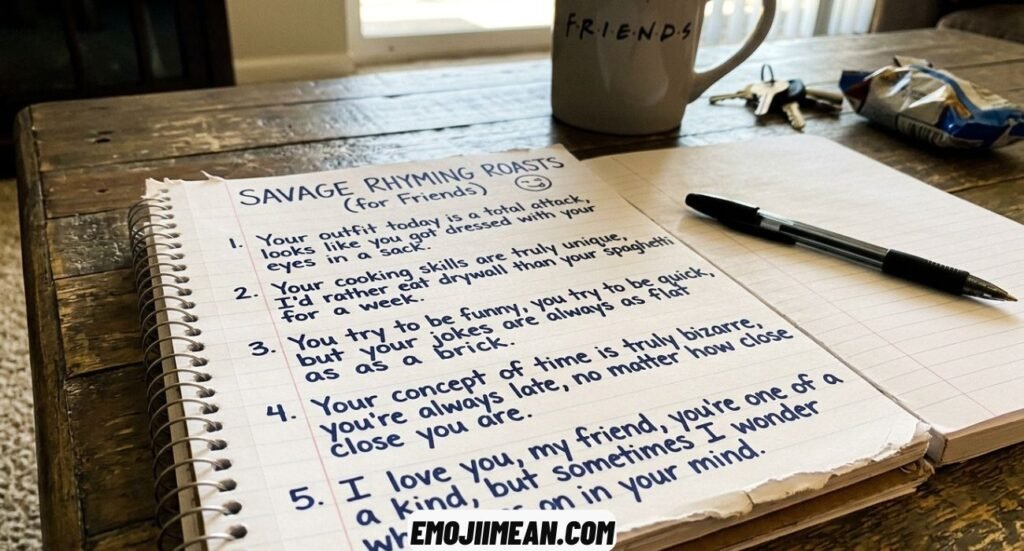 F·R·I·E·N·D·S
SAVAGE RHYMING ROASTS
(for Friends)
1. Your outfit today is a total attack,
looks like you got dressed with your
eyes in a sack.
2. Your cooking skills are truly unique,
I'd rather eat drywall than your spaghetti
for a week.
3. You try to be funny, you try to be quick,
but your jokes are always as flat
as as a brick.
4. Your concept of time is truly bizarre,
you're always late, no matter how close
close you are.
5. I love you, my friend, you're one of a
a kind, but sometimes I wonder
on in your mind.
EMOJIIMEAN.COM